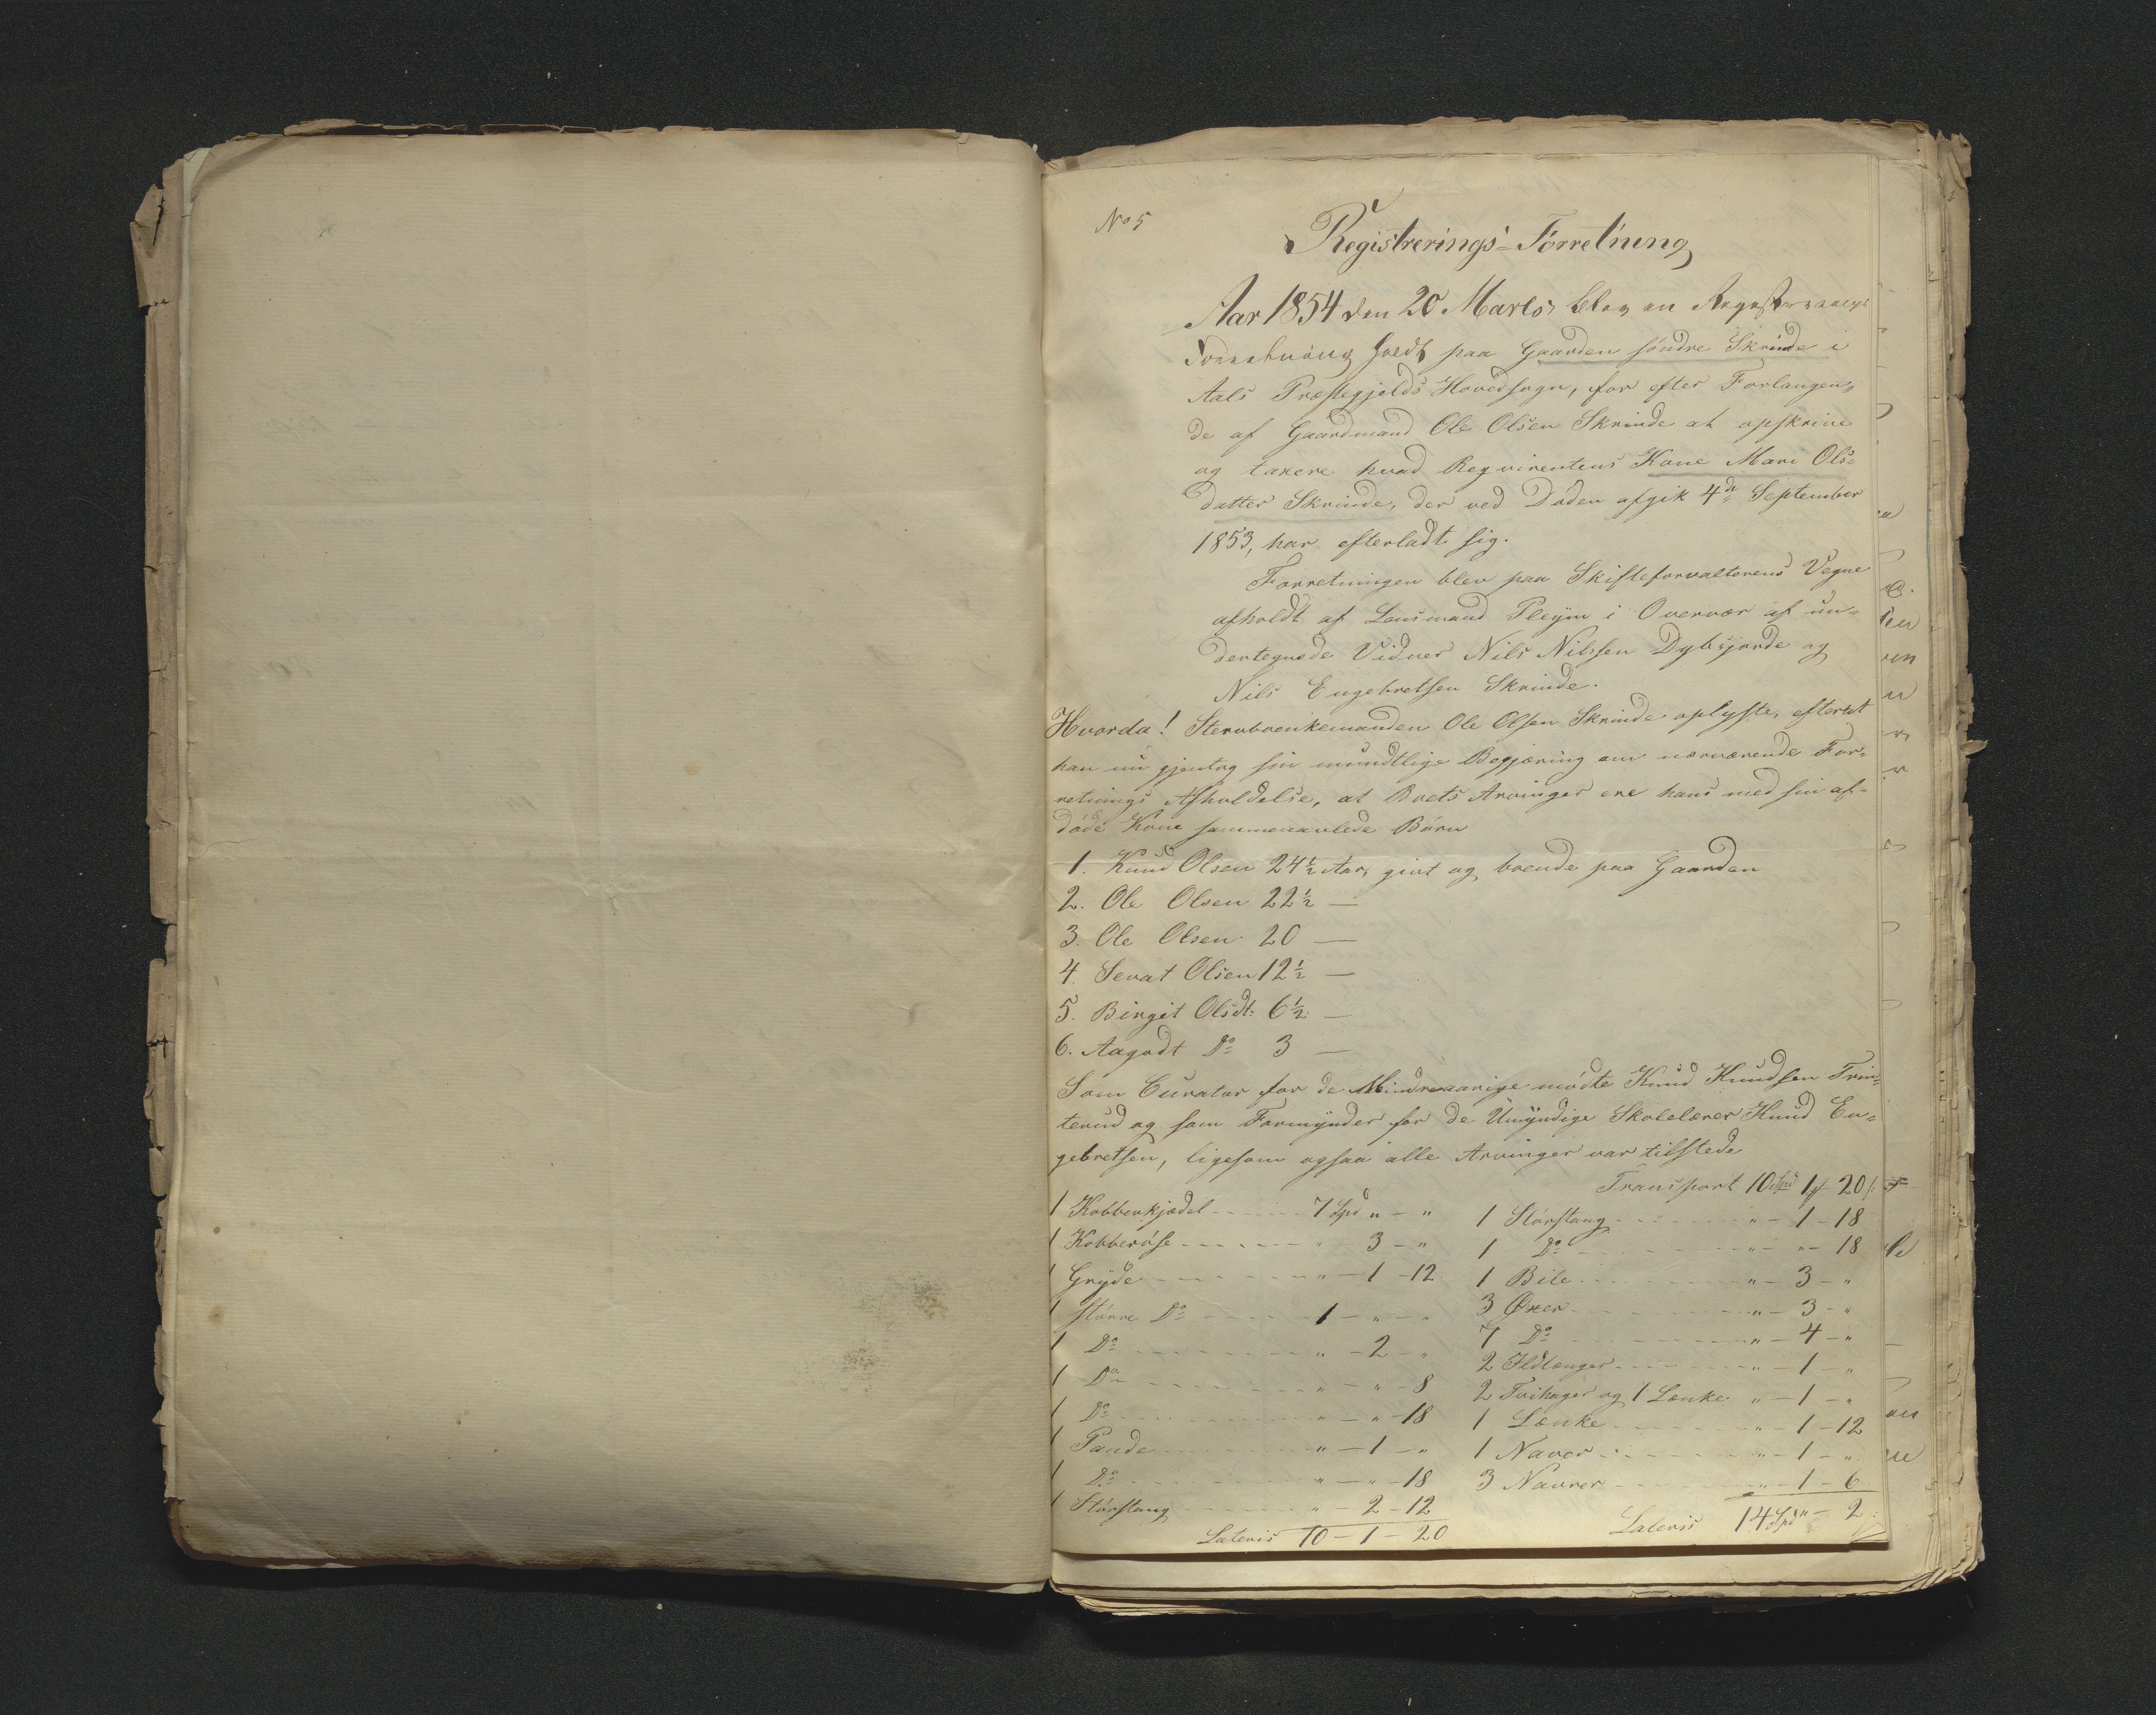 No 5
Registrerings-Forretning
Aar 1854 den 20 Marts blev en Registrerings
Forretning holdt paa Gaarden søndre Skrinde i
Aals Præstegjelds Hovedsogn, for efter Forlangen,,
de af Gaardmand Ole Olsen Skrinde at opskrive
og taxere hvad Reqvirentens Kone Mari Ols=
datter Skrinde, der ved Døden afgik 4de September
1853, har efterladt sig.
Forretningen blev paa Skifteforvalterens Vegne
afholdt af Lensmand Pleym i Overvær af un=
dertegnede Vidner Nils Nilssen Dybsjorde og
Nils Engebretsen Skrinde.
Hvorda! Stervboenkemanden Ole Olsen Skrinde oplyste, efterat
han nu gjentog sin mundtlige Begjæring om nærværende For=
retnings Afholdelse, at Boets Arvinger ere hans med sin af=
døde Kone sammenavlede Børn
1. Knud Olsen 24½ Aar, givt og boende paa Gaarden
2. Ole Olsen 22½ —
3. Ole Olsen 20 —
4. Sevat Olsen 12½ —
5. Birgit Olsdt: 6½ —
6. Aagodt Do 3 —
Som Curator for de Mindreaarige mødte Knud Knudsen Trin=
terud og som Formynder for de Umyndige Skolelærer Knud En=
gebretsen, ligesom ogsaa alle Arvinger var tilstede
1 Kobberkjædel 7 Spd " - "
1 Kobberøse " 3 - "
1 Gryde " - 1 - 12
1 større Do 1 - " - "
1 Do " - 2 - "
1 Do " - " - 8
1 Do " - " - 18
1 Pande " - 1 - "
1 Do " - " - 18
1 Störstang " - 2 - 12
Lateris 10 - 1 - 20
Transport 10 Spd 1 20
1 Störstang " - 1 - 18
1 Do " - " - 18
1 Bile " - 3 - "
3 Øxer " - 3 - "
7 Do " - 4 - "
2 Ildtænger " - 1 - "
2 Tvihager og 1 Lænke " - 1 - "
1 Lænke " - 1 - 12
1 Naver " - 1 - "
3 Navrer " - 1 - 6
Lateris 14 Spd " - 2